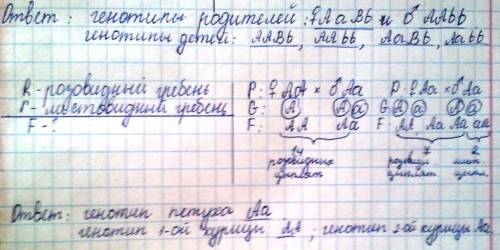 Ответ: генотипы родителей: ♀АаВb и ♂ ААbb
генотипы детей: ААВb, ААbb, АаВb, Ааbb
R - розовидный гребень
r - листовидный гребень
F - ?
P: ♀ АА × ♂ Аа
G: А А а
F: АА Аа
14
розовидных
цыплят
P: ♀ Аа × ♂ Аа
G: А а А а
F: АА Аа Аа аа
7 2
розовидн
цыплят
цыпл.
Ответ: генотип петуха Аа
генотип 1-ой курицы АА; генотип 2-ой курицы Аа